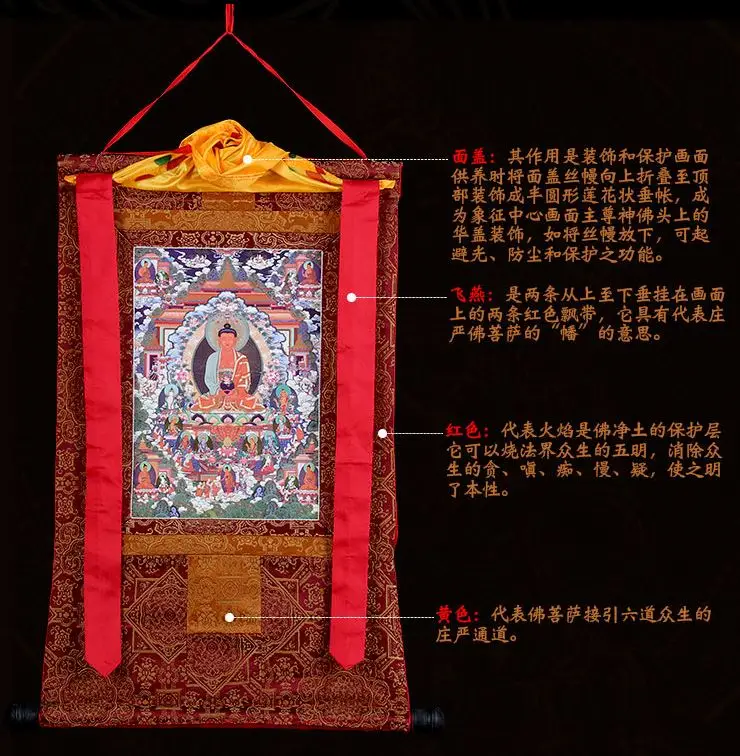 面盖：其作用是装饰和保护画面
供养时将面盖丝幔向上折叠至顶
部装饰成半圆形莲花状垂帐，成
为象征中心画面主尊神佛头上的
华盖装饰，如将丝幔放下，可起
避光、防尘和保护之功能。
飞燕：是两条从上至下垂挂在画面
上的两条红色飘带，它具有代表庄
严佛菩萨的“幡”的意思。
红色：代表火焰是佛净土的保护层
它可以烧法界众生的五明，消除众
生的贪、嗔、痴、慢、疑，使之明
了本性。
黄色：代表佛菩萨接引六道众生的
庄严通道。